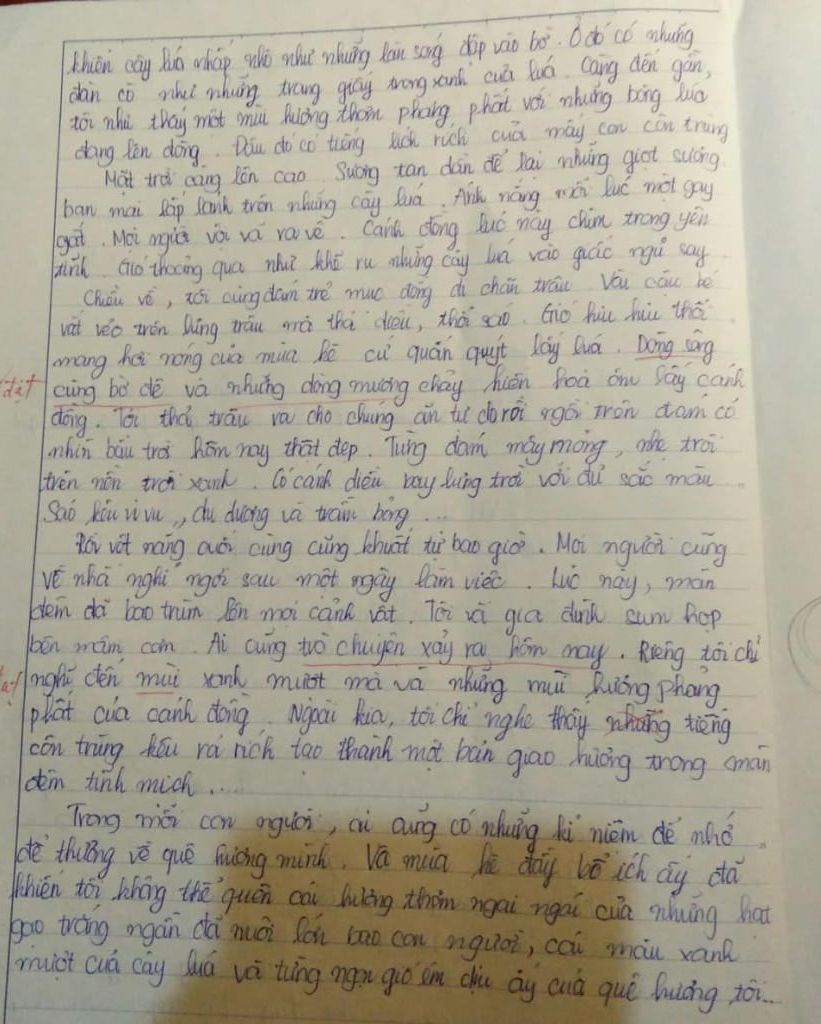 khiến cây lúa nhấp nhô như những làn sóng đập vào bờ. Ở đó có những
đàn cò như những trang giấy trong xanh của lúa. Càng đến gần,
tôi như thấy một mùi hương thơm phang phất với những bông lúa
đang lên đòng. Đâu đó có tiếng lích rích của mấy con côn trùng
Mặt trời càng lên cao. Sương tan dần để lại những giọt sương
ban mai lấp lánh trên những cây luá. Ánh nắng mỗi lúc một gay
gắt. Mọi người vội vã ra về. Cánh đồng lúc này chìm trong yên
tĩnh. Gió thoảng qua như khẽ ru những cây luá vào giấc ngủ say.
Chiều về, tôi cùng đám trẻ mục đồng đi chăn trâu. Vài cậu bé
vắt vẻo trên lưng trâu mà thả diều, thổi sáo. Gió hiu hiu thổi
mang hơi nóng của mùa hè cứ quấn quýt lấy luá. Dòng sông
đặt
cùng bờ đê và những dòng mương chảy hiền hoà ôm lấy cánh
đồng. Tôi thả trâu ra cho chúng ăn tự do rồi ngồi trên đám cỏ
nhìn bầu trời hôm nay thật đẹp. Từng đám mây mỏng, nhẹ trôi
trên nền trời xanh. Có cánh diều bay lưng trời với đủ sắc màu.
Sáo kêu vi vu, du dương và trầm bổng ...
Rồi vệt nắng cuối cùng cũng khuất tự bao giờ. Mọi người cũng
về nhà nghỉ ngơi sau một ngày làm việc. Lúc này, màn
đêm đã bao trùm lên mọi cảnh vật. Tôi và gia đình sum họp
bên mâm cơm. Ai cũng trò chuyện xảy ra hôm nay. Riêng tôi chỉ
nghĩ đến mùi xanh mướt mà và những mùi hương phang
phất của cánh đồng. Ngoài kia, tôi chỉ nghe thấy những tiếng
côn trùng kêu rả rích tạo thành một bản giao hưởng trong màn
đêm tĩnh mịch ....
Trong mỗi con người, ai cũng có những kỉ niệm để nhớ
để thương về quê hương mình. Và mùa hè đầy bổ ích ấy đã
khiến tôi không thể quên cái hương thơm ngai ngái của những hạt
gạo trắng ngần đã nuôi lớn bao con người, cái màu xanh
mượt cuả cây luá và từng ngọn gió êm dịu ấy cuả quê hương tôi...